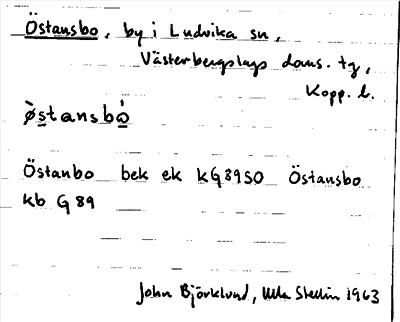 Östansbo, by i Ludvika sn,
Västerbergslags doms. tg,
Kopp. l.
ø̀stansbó̲
Östanbo bek ek KG89SO Östansbo
kb G 89
John Björklund, Ulla Stellin 1963